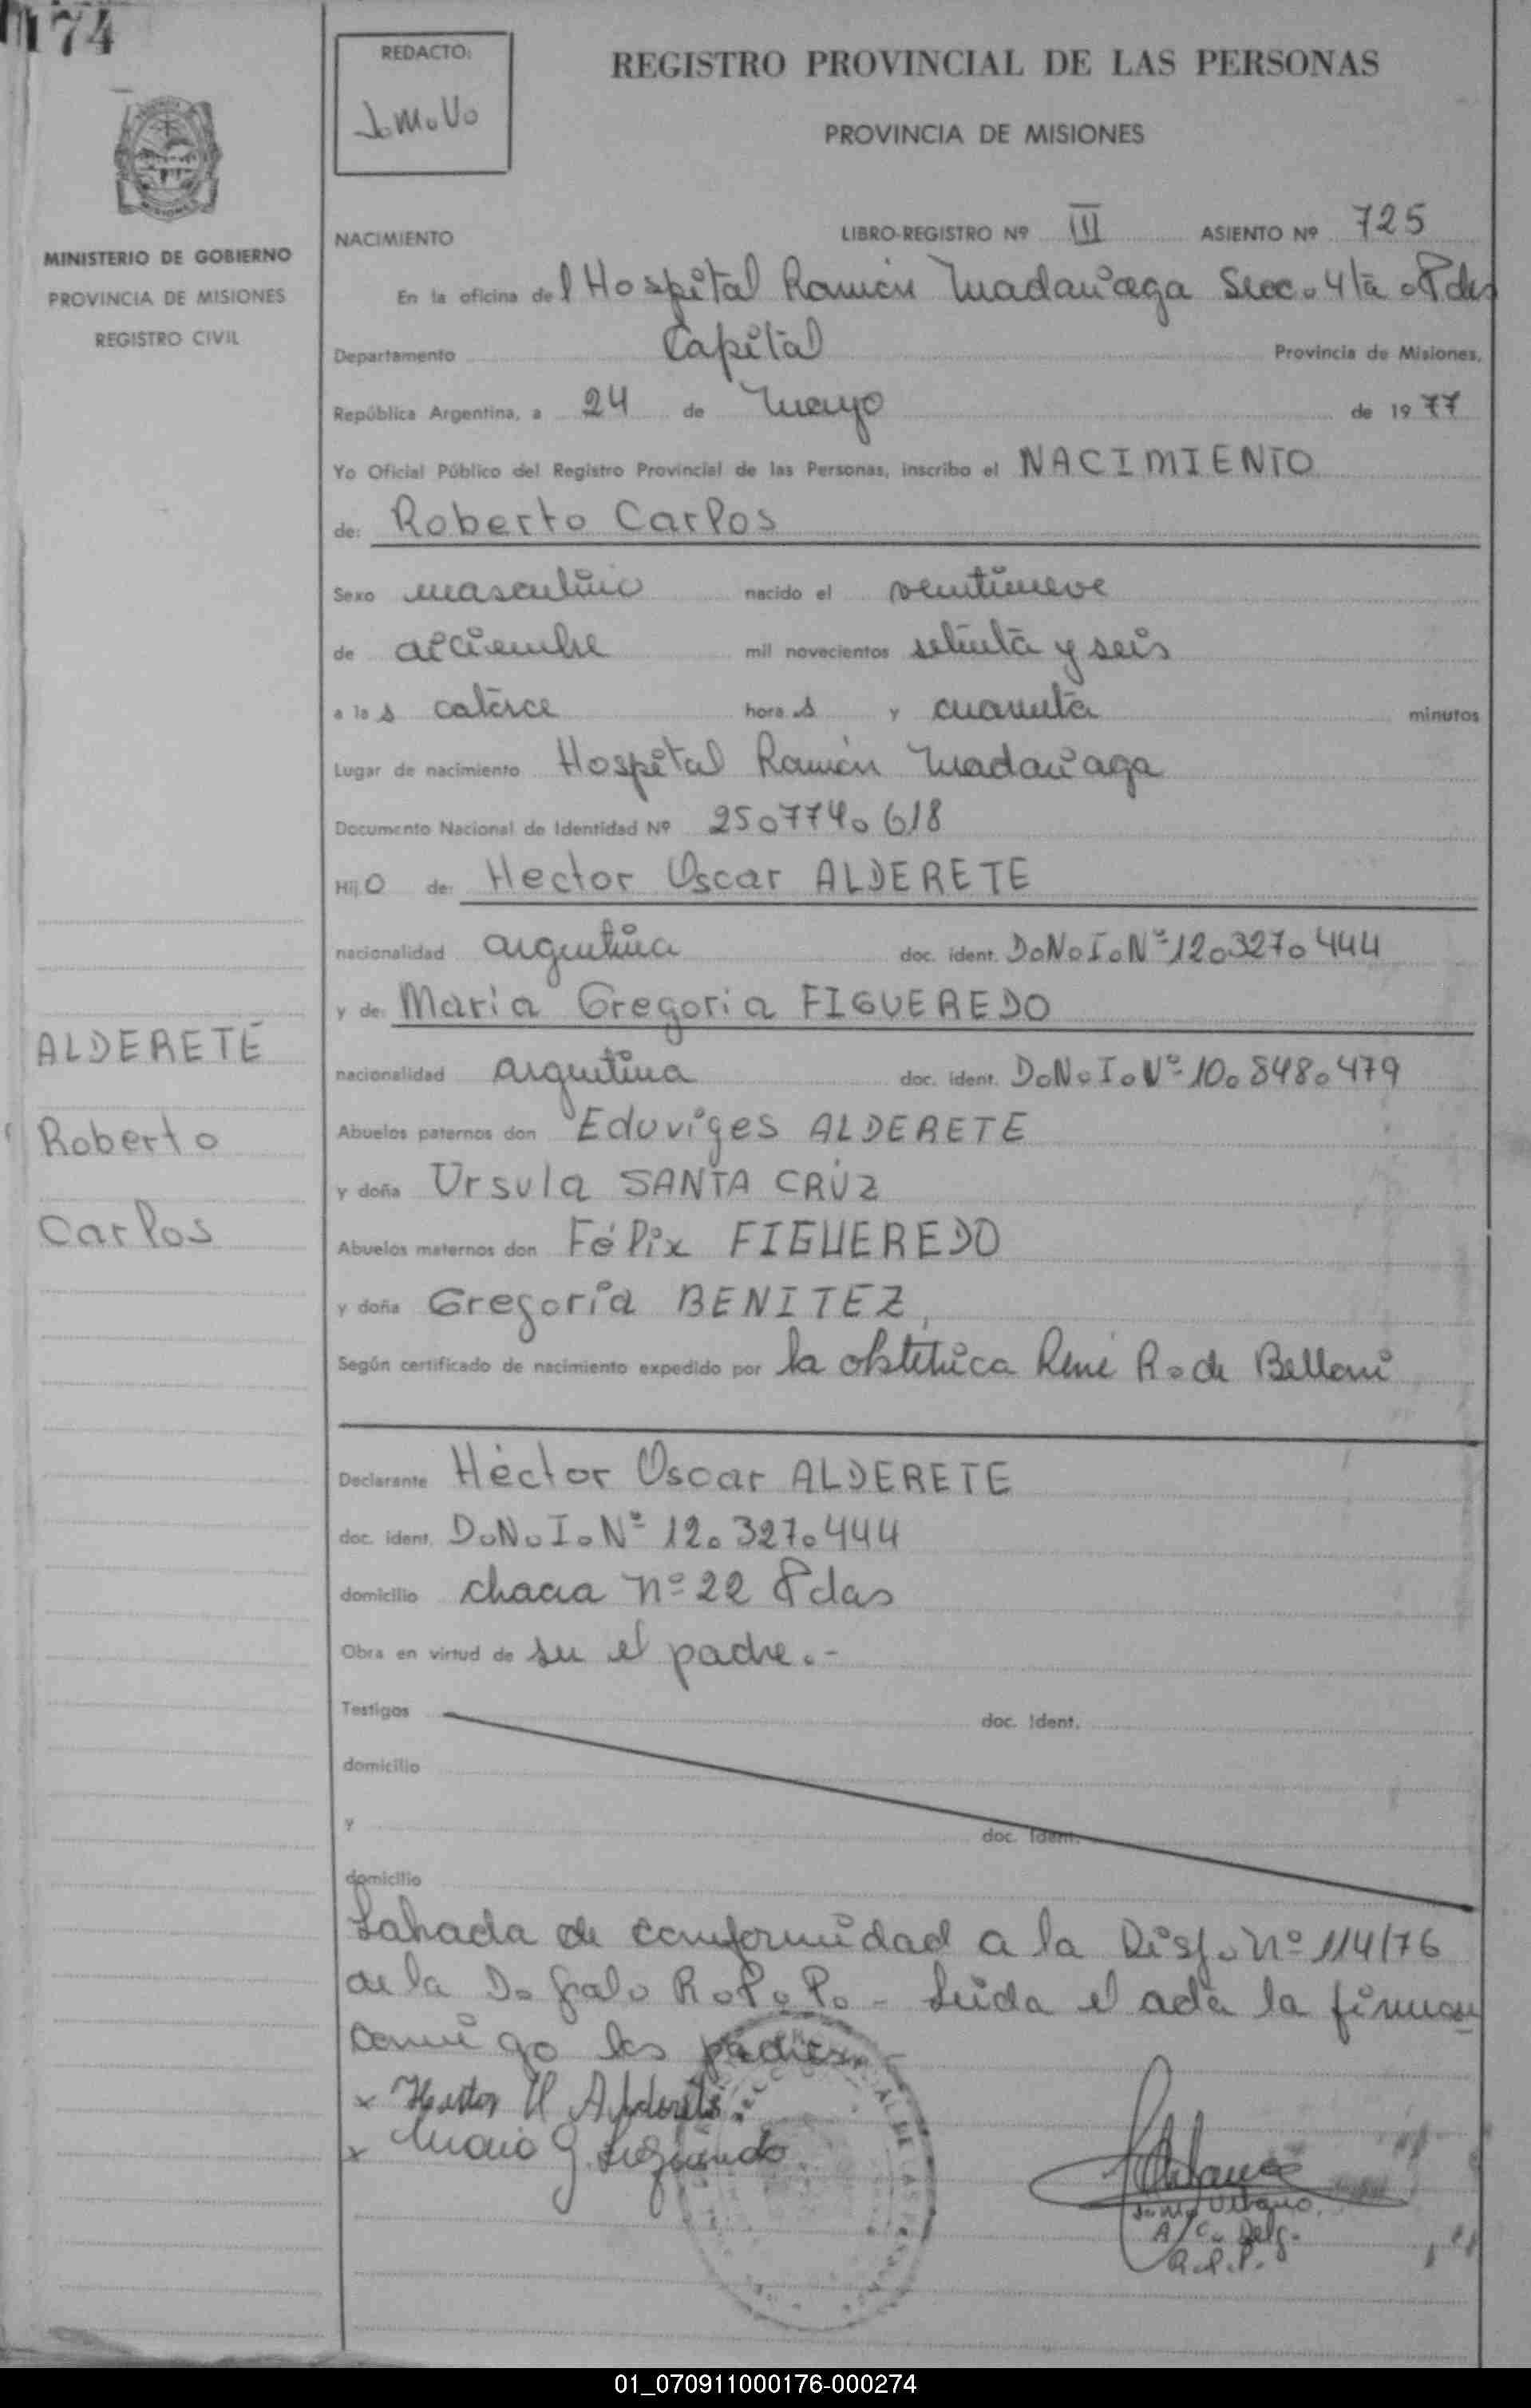 174
REDACTO:
J.M.V.
REGISTRO PROVINCIAL DE LAS PERSONAS
PROVINCIA DE MISIONES
MINISTERIO DE GOBIERNO
PROVINCIA DE MISIONES
REGISTRO CIVIL
NACIMIENTO LIBRO-REGISTRO Nº III ASIENTO Nº 725
En la oficina del Hospital Ramón Madariaga Secc. 4ta. Pdas
Departamento Capital Provincia de Misiones,
República Argentina, a 24 de Mayo de 1977
Yo Oficial Público del Registro Provincial de las Personas, inscribo el NACIMIENTO
de: Roberto Carlos
Sexo masculino nacido el veintinueve
de diciembre mil novecientos setenta y seis
a las catorce horas y cuarenta minutos
Lugar de nacimiento Hospital Ramón Madariaga
Documento Nacional de Identidad Nº 25.774.618
Hijo de: Hector Oscar ALDERETE
nacionalidad argentina doc. ident. D.N.I.Nº 12.327.444
y de: Maria Gregoria FIGUEREDO
nacionalidad argentina doc. ident. D.N.I.Nº 10.848.479
Abuelos paternos don Eduviges ALDERETE
y doña Ursula SANTA CRUZ
Abuelos maternos don Félix FIGUEREDO
y doña Gregoria BENITEZ,
Según certificado de nacimiento expedido por la obstetrica René R. de Belloni
ALDERETE
Roberto
Carlos
Declarante Héctor Oscar ALDERETE
doc. ident. D.N.I.Nº 12.327.444
domicilio chacra nº 22 Pdas
Obra en virtud de ser el padre.-
Testigos doc. Ident.
domicilio
y doc. Ident.
domicilio
Labrada de conformidad a la Disp. nº 114/76
de la D. Gral. R.P.P.- Leida el acta la firman
conmigo los padres.
x Hector O Alderete
x Maria G. Figueredo
A/C. Delg.
R.P.P.
01_070911000176-000274